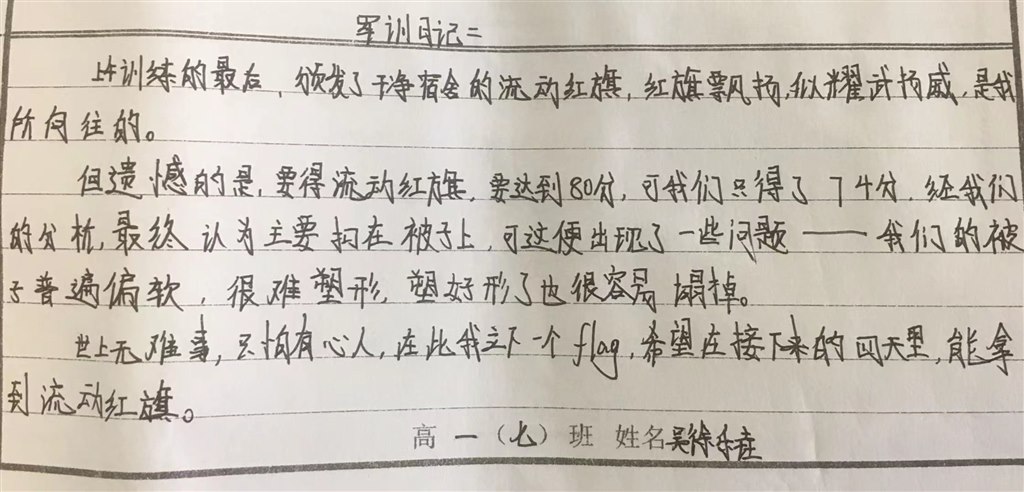 军训日记二
上午训练的最后，颁发了干净宿舍的流动红旗，红旗飘扬，似耀武扬威，是我
所向往的。
但遗憾的是，要得流动红旗，要达到80分，可我们只得了74分．经我们
的分析，最终认为主要扣在被子上，可这便出现了一些问题——我们的被
子普遍偏软，很难塑形，塑好形了也很容易塌掉。
世上无难事，只怕有心人，在此我立下一个flag，希望在接下来的四天里，能拿
到流动红旗。
高一（七）班 姓名吴徐乐